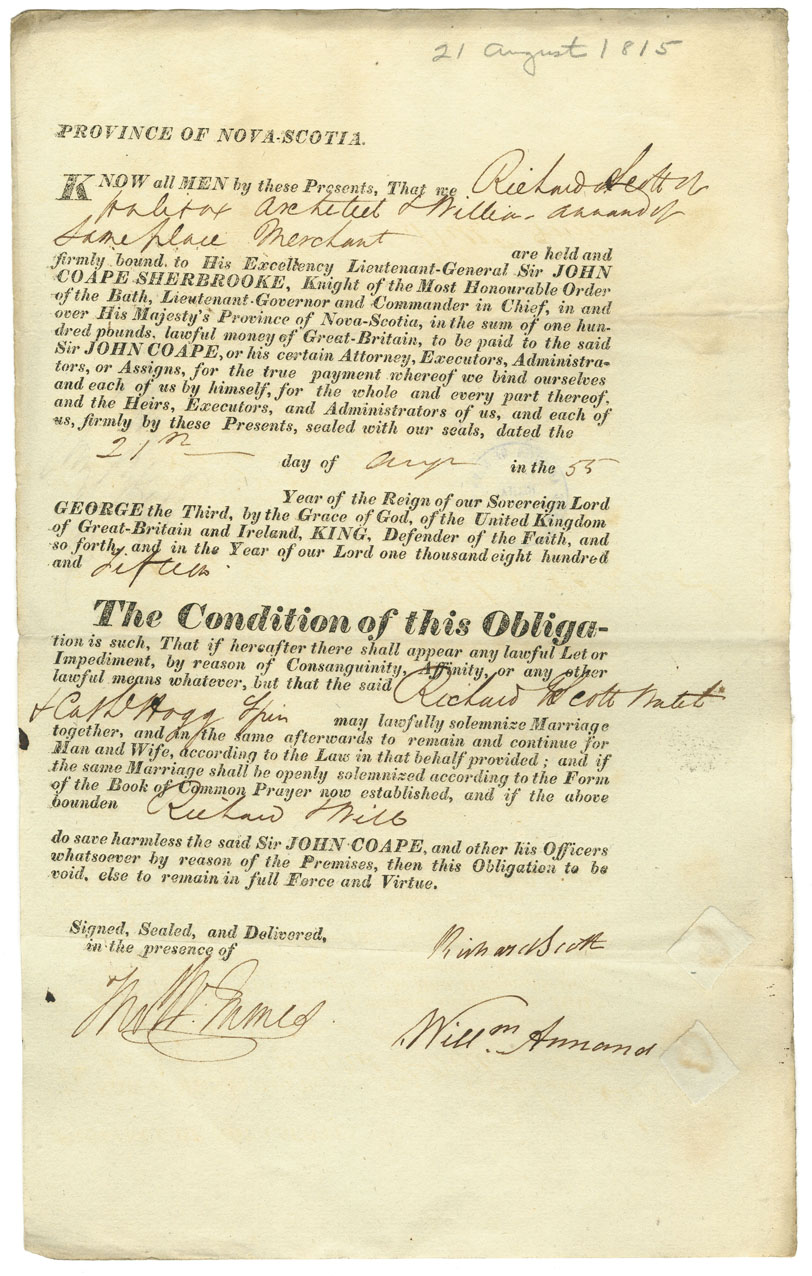 21 August 1815
PROVINCE OF NOVA-SCOTIA.
KNOW all MEN by these Presents, That we Richard Scott of
Halifax Architect & William Annand of
Same place Merchant
are held and
firmly bound to His Excellency Lieutenant-General Sir JOHN
COAPE SHERBROOKE, Knight of the Most Honourable Order
of the Bath, Lieutenant-Governor and Commander in Chief, in and
over His Majesty's Province of Nova-Scotia, in the sum of one hun-
dred pounds, lawful money of Great-Britain, to be paid to the said
Sir JOHN COAPE, or his certain Attorney, Executors, Administra-
tors, or Assigns, for the true payment whereof we bind ourselves
and each of us by himself, for the whole and every part thereof,
and the Heirs, Executors, and Administrators of us, and each of
us, firmly by these Presents, sealed with our seals, dated the
21st day of Augt in the 55
Year of the Reign of our Sovereign Lord
GEORGE the Third, by the Grace of God, of the United Kingdom
of Great-Britain and Ireland, KING, Defender of the Faith, and
so forth, and in the Year of our Lord one thousand eight hundred
and fifteen.
The Condition of this Obliga-
tion is such, That if hereafter there shall appear any lawful Let or
Impediment, by reason of Consanguinity, Affinity, or any other
lawful means whatever, but that the said Richard Scott
& Hogg Spin may lawfully solemnize Marriage
together, and in the same afterwards to remain and continue for
Man and Wife, according to the Law in that behalf provided; and if
the same Marriage shall be openly solemnized according to the Form
of the Book of Common Prayer now established, and if the above
bounden Richard & Will
do save harmless the said Sir JOHN COAPE, and other his Officers
whatsoever by reason of the Premises, then this Obligation to be
void, else to remain in full Force and Virtue.
Signed, Sealed, and Delivered,
in the presence of
Richard Scott
Willm Annand